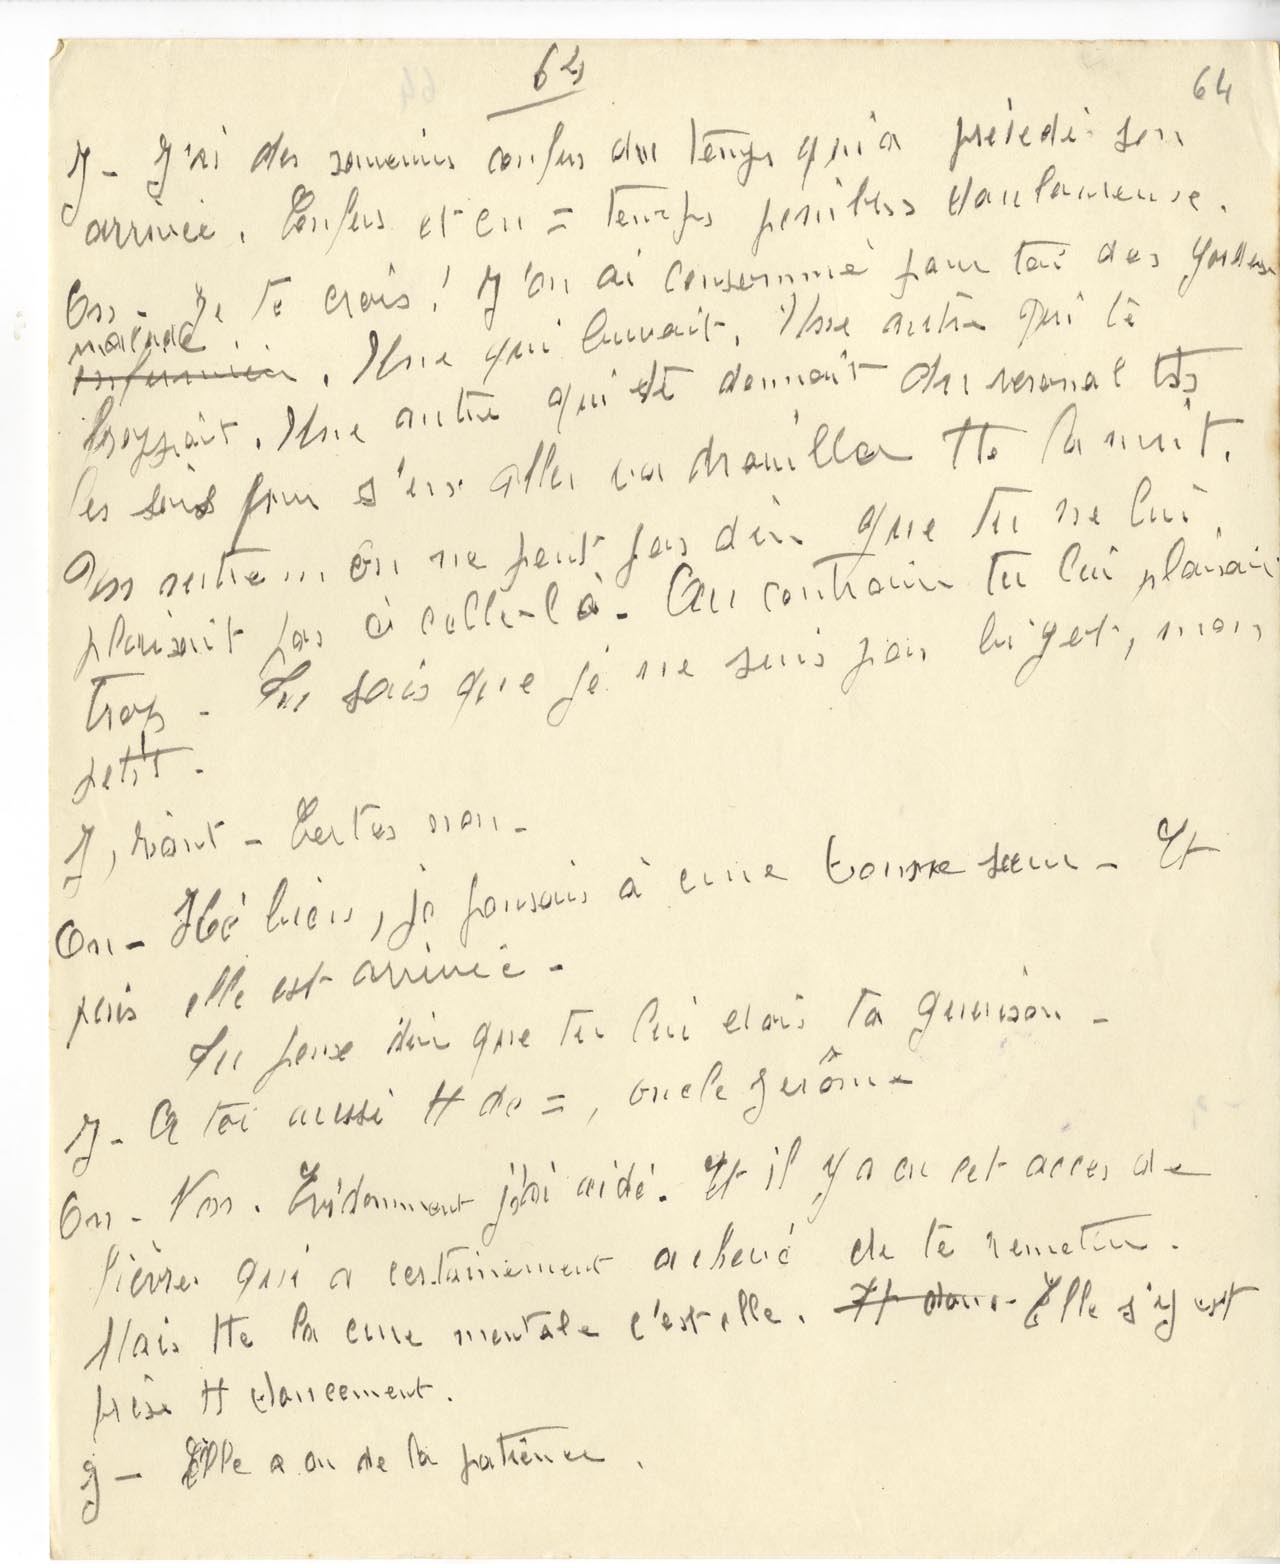 64
64
J - J'ai des souvenirs confus du temps qui a précédé son
arrivée. Confus et en = temps pénibles douloureuse.
On - Je te crois ! J'en ai consommé pour toi des gardes
malade.
infirmières. Une qui buvait. Une autre qui te
Une autre qui te donnait du veronal ts
les soirs pour s'en aller vadrouiller tte la nuit.
Une autre... on ne peut pas dire que tu ne lui
plaisait pas à celle-là - Au contraire tu lui plaisais
trop - Tu sais que je ne suis pas bigot, mon
petit -
J, riant - Certes non -
On - Hé bien, je pensais à une bonne sœur - Et
puis elle est arrivée -
Tu peux dire que tu lui dois ta guérison -
J - A toi aussi tt de =, oncle Jérôme
On - Non. Evidemment j'ai aidé. Et il y a eu cet accès de
fièvre qui a certainement achevé de te remettre.
Mais tte la cure mentale c'est elle. Et dou- Elle s'y est
prise tt doucement.
J - Elle a eu de la patience.